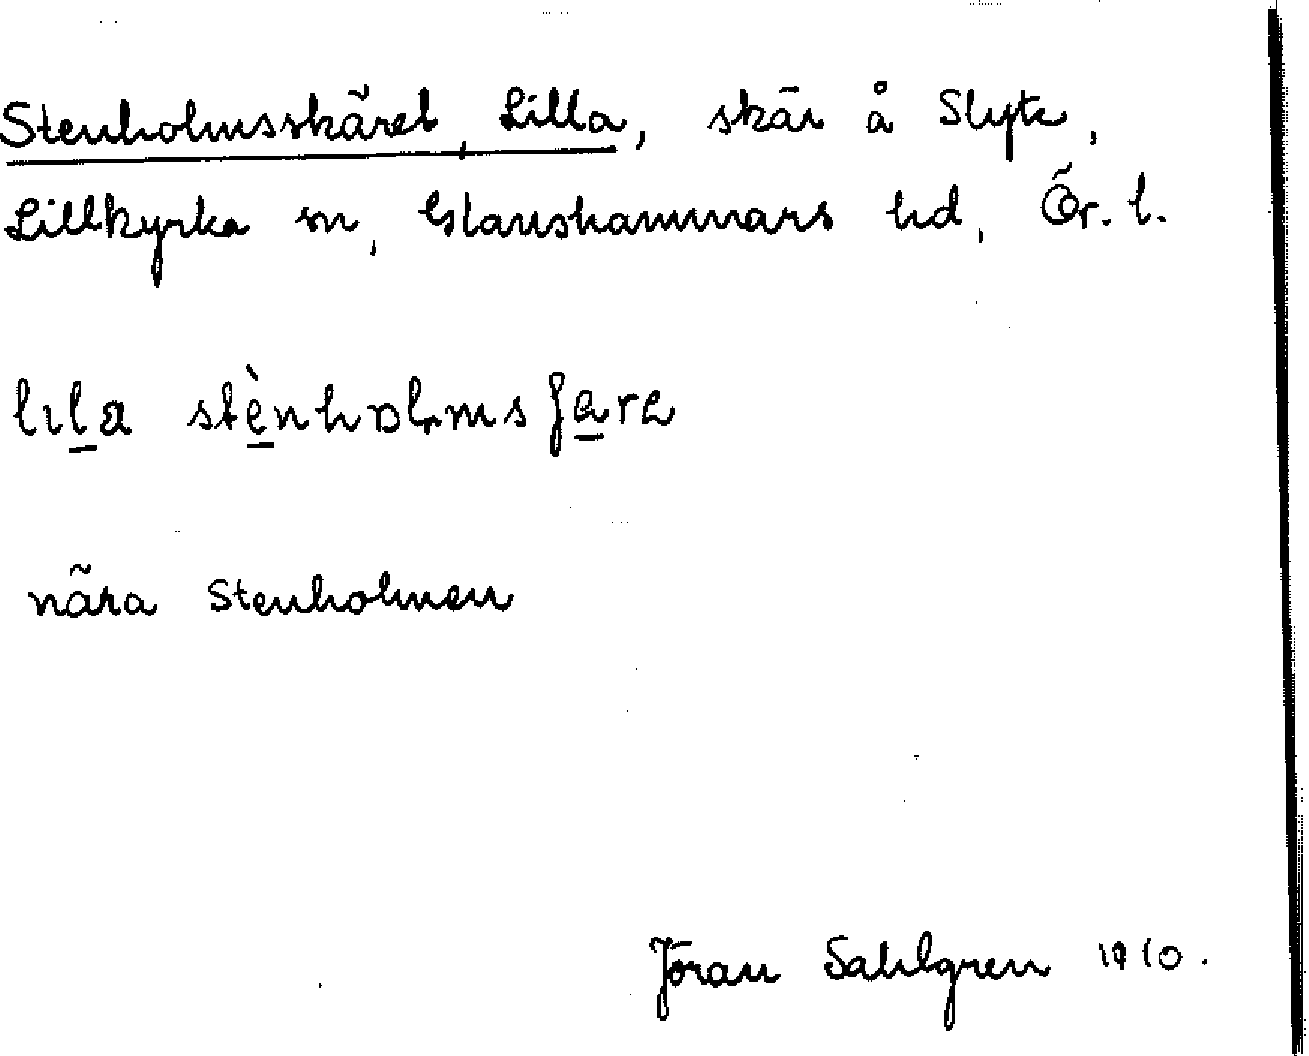 Stenholmsskäret, Lilla, skär å Slyte,
Lillkyrka sn, Glanshammars hd, Ör. l.
lıla stènhɒlmsʃarɐ
nära Stenholmen
Jöran Sahlgren 1910.